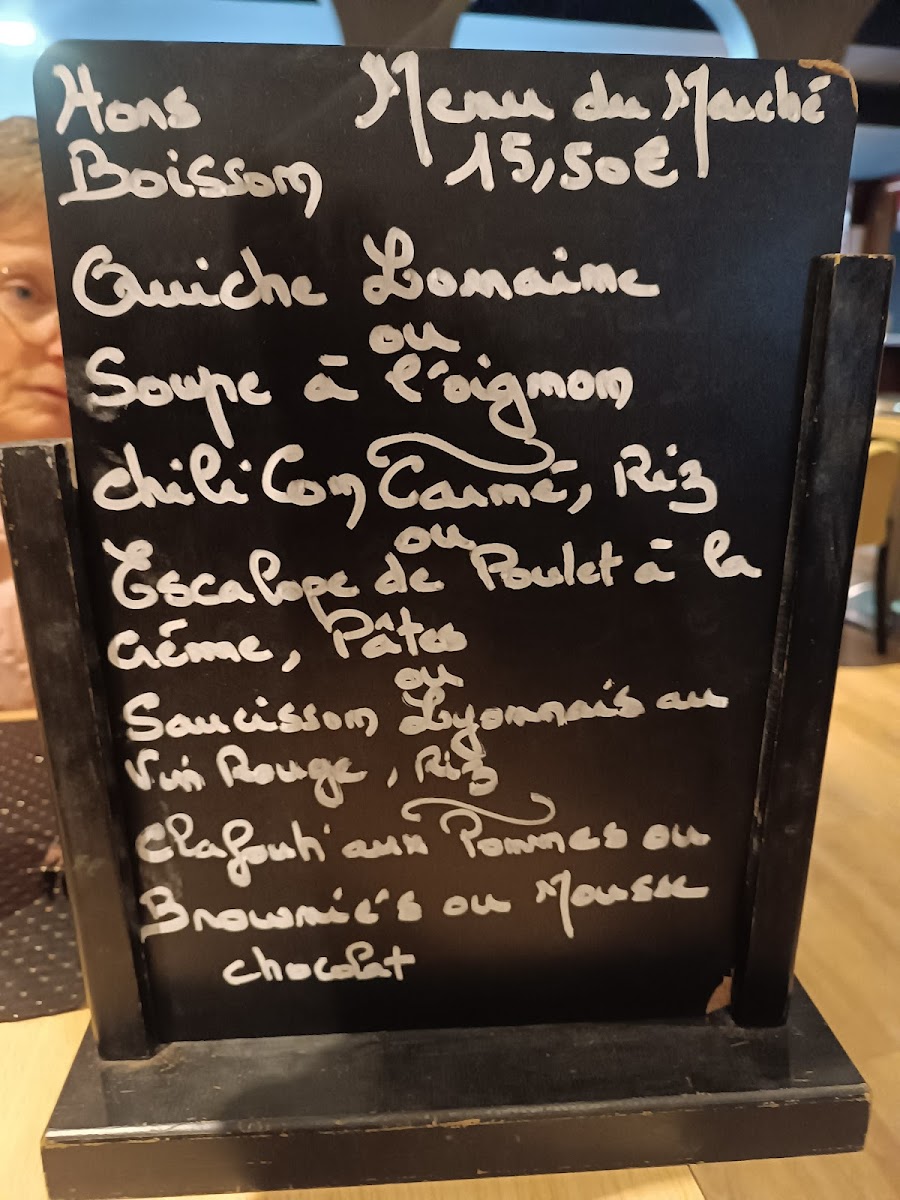 Hors
Menu du Marché
Boisson
15,50€
Quiche Lorraine
ou
Soupe à l'oignon
Chili Con Carné, Riz
ou
Escalope de Poulet à la
Crème, Pâtes
ou
Saucisson Lyonnais au
Vin Rouge, Riz
Clafouti aux Pommes ou
Brownie's ou Mousse
chocolat